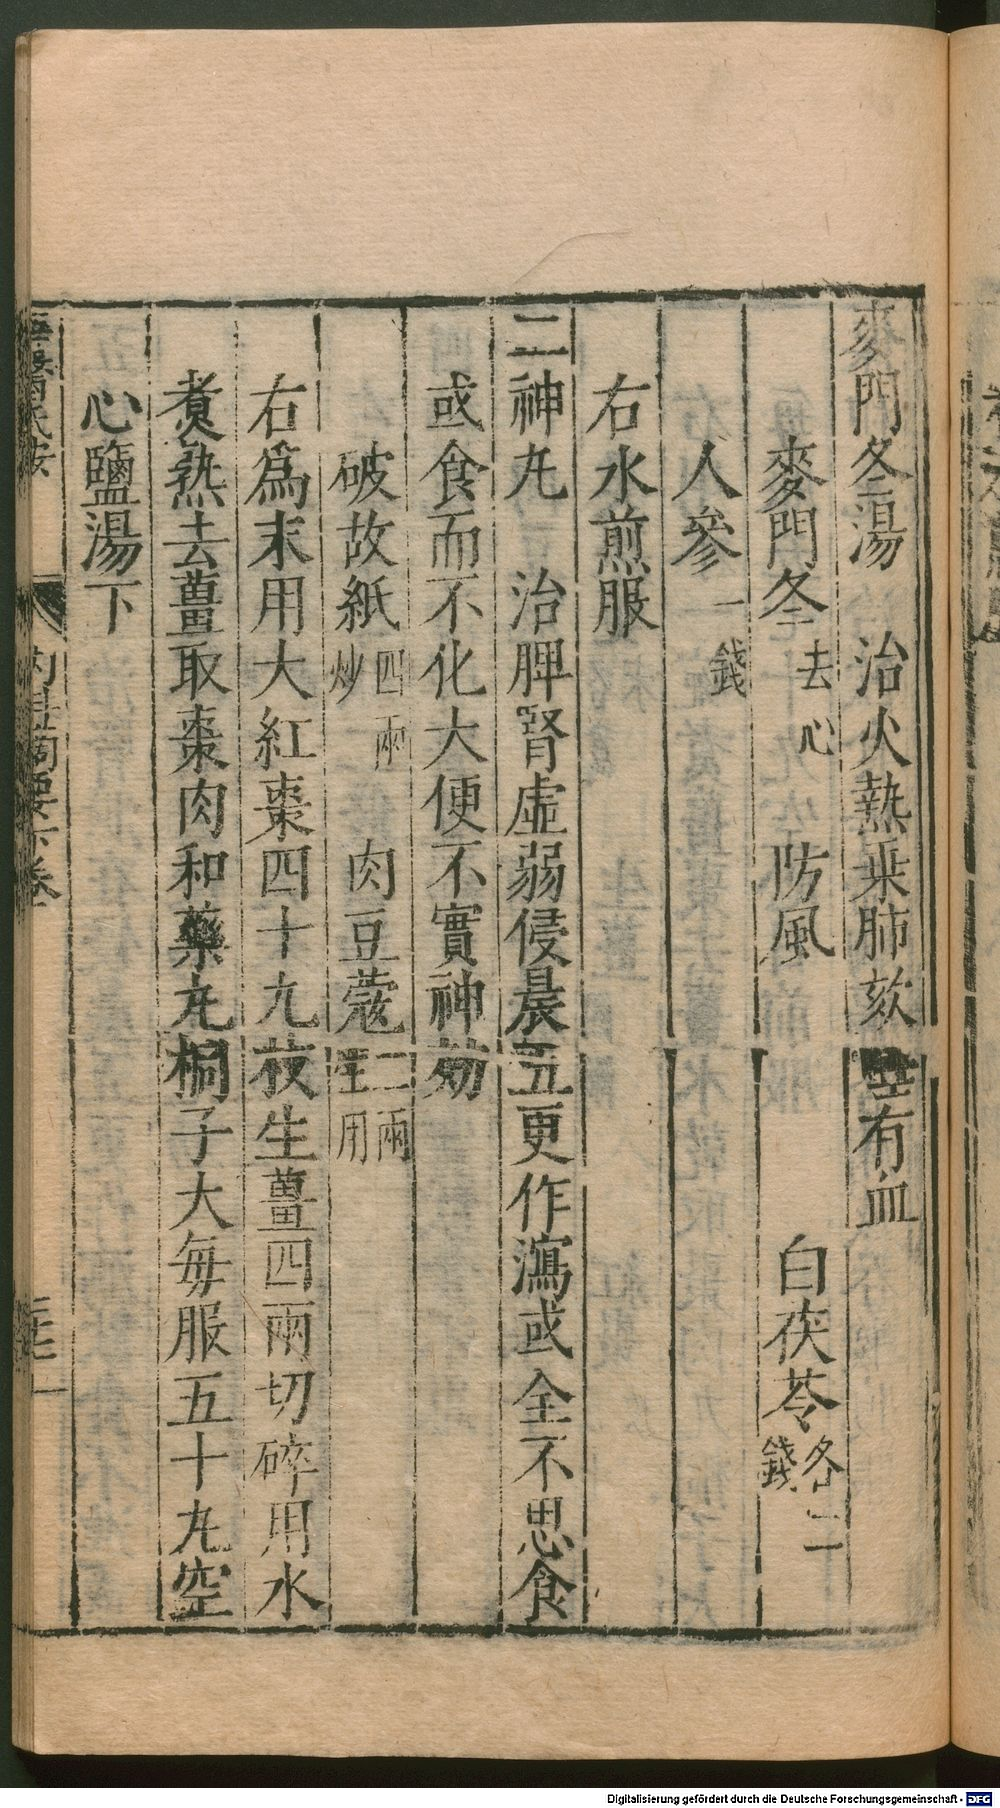 麥門冬湯 治火熱乗肺欬唾有血
麥門冬去心 防風 白茯苓各二錢
人參一錢
右水煎服
二神丸 治脾腎虛弱侵晨五更作瀉或全不思食
或食而不化大便不實神効
破故紙四兩炒 肉豆蔻二兩生用
右爲末用大紅棗四十九枚生薑四兩切碎用水
煑熟去薑取棗肉和藥丸桐子大每服五十丸空
心鹽湯下
內科摘要下卷
Digitalisierung gefördert durch die Deutsche Forschungsgemeinschaft - DFG